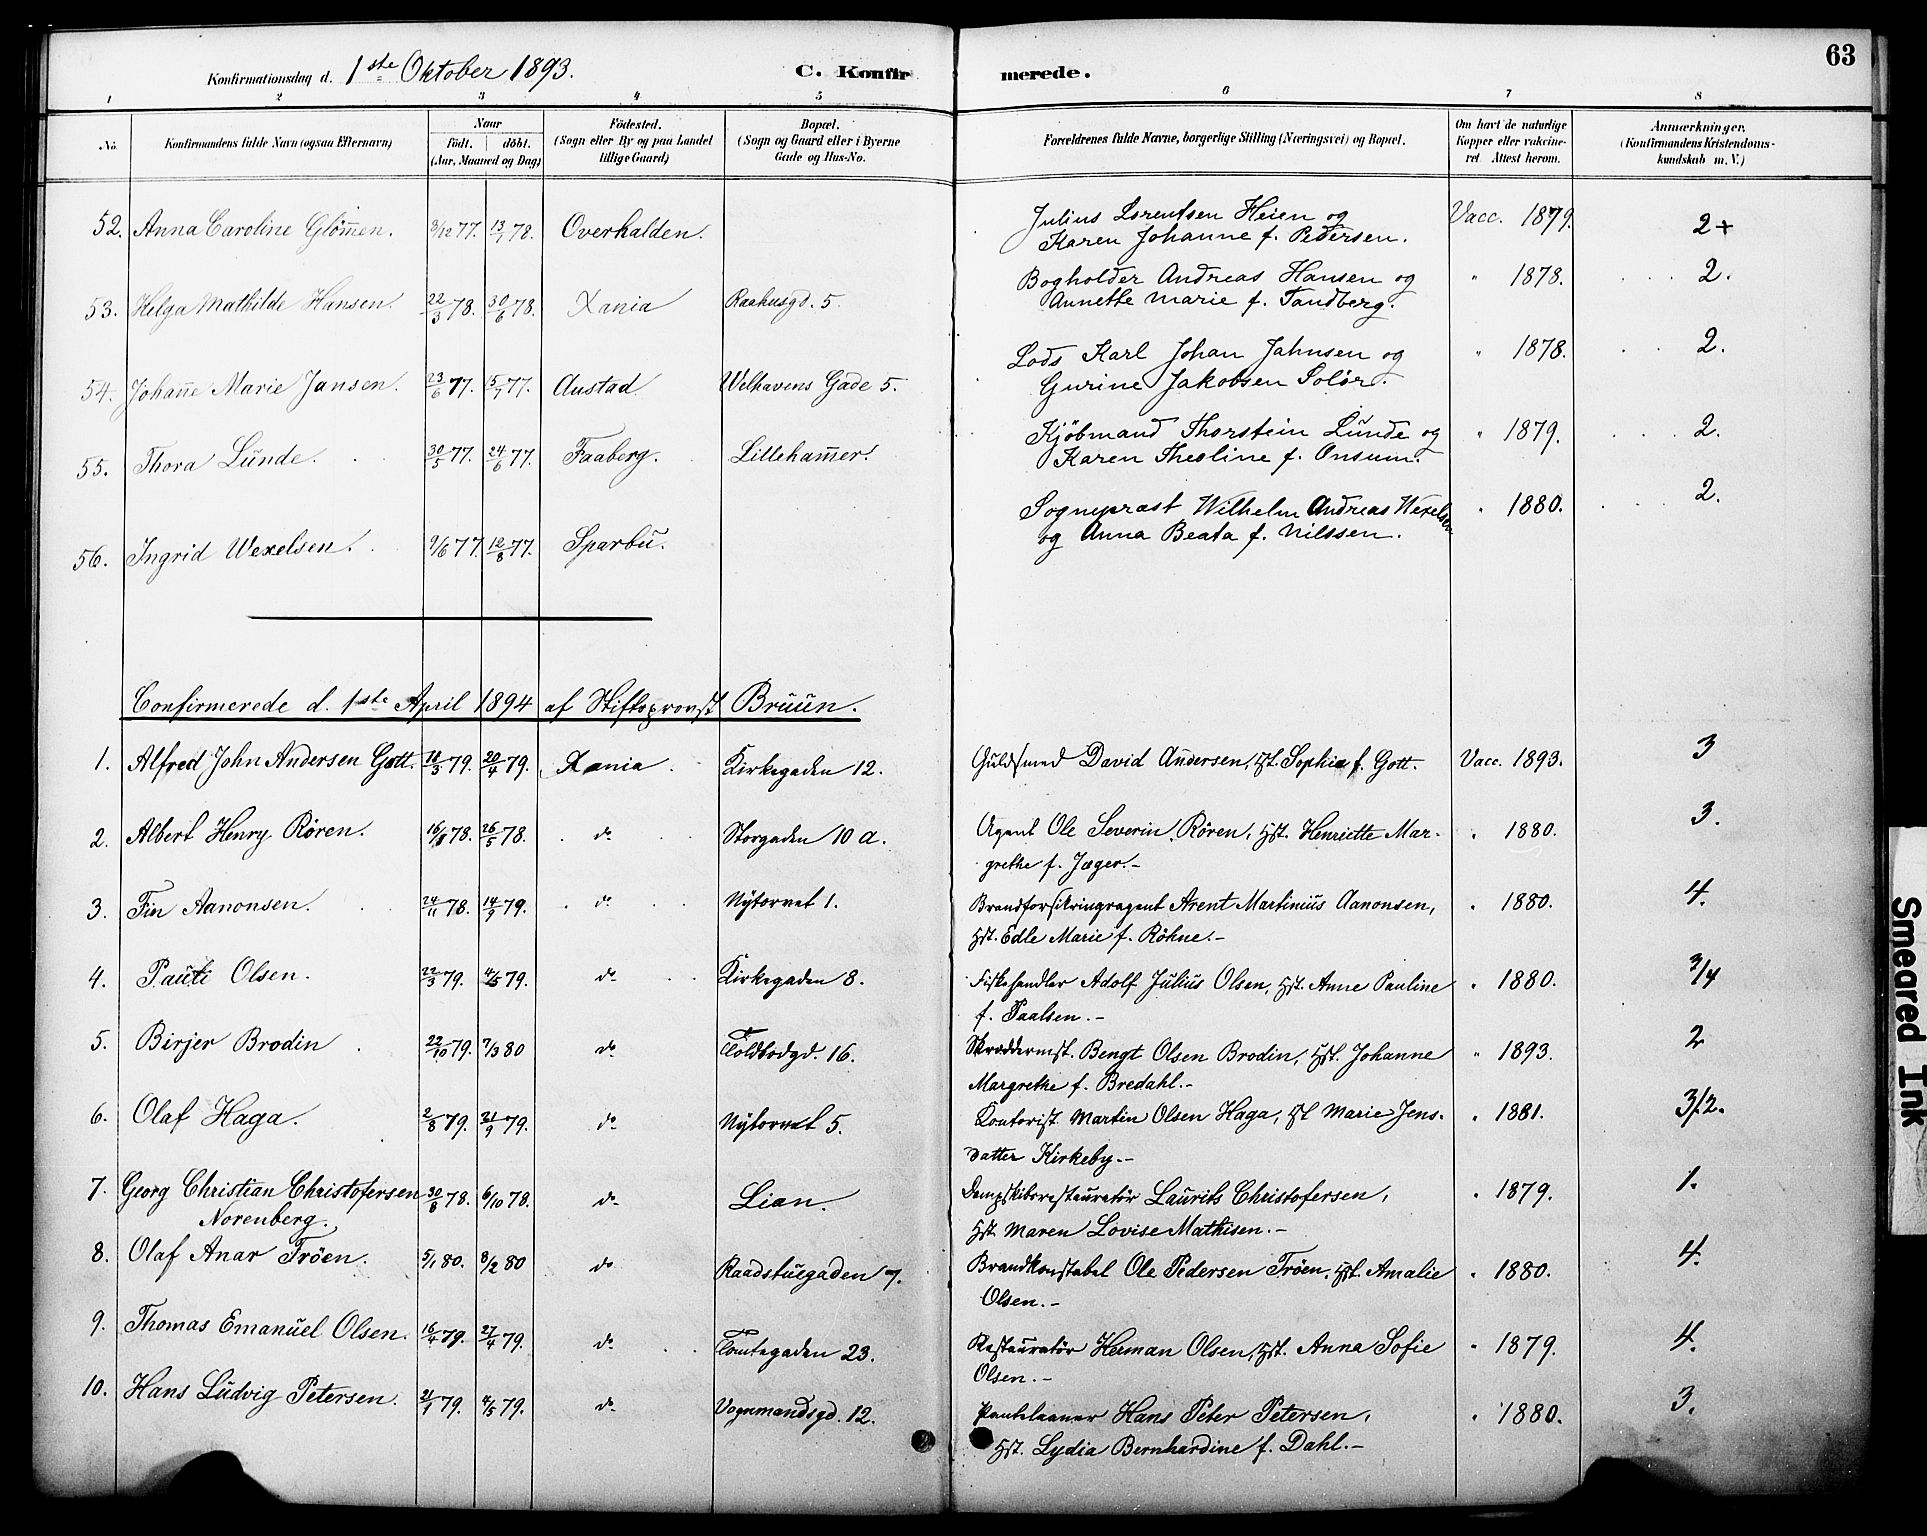 63
Konfirmationsdag d. 1ste Oktober 1893. C. Konfirmerede.
1 2 3 4 5 6 7 8
No. Konfirmandens fulde Navn (ogsaa Efternavn) Naar födt. döbt. (Aar, Maaned og Dag) Födested. (Sogn eller By og paa Landet tillige Gaard) Bopæl. (Sogn og Gaard eller i Byerne Gade og Hus-No. Forældrenes fulde Navne, borgerlige Stilling (Næringsvei) og Bopæl. Om havt de naturlige Kopper eller vakcineret. Attest herom. Anmærkninger. (Konfirmandens Kristendomskundskab m. V.)
52. Anna Caroline Glömmen. 3/12 77. 13/1 78. Overhalden. Julius Lorentsen Heien og Vacc. 1879. 2+
Karen Johanne f. Pedersen.
53. Helga Mathilde Hansen. 22/3 78. 30/6 78. Xania Raahusgd. 5 Bogholder Andreas Hansen og " 1878. 2.
Annette Marie f. Tandberg.
54. Johanne Marie Jansen. 23/6 77. 15/7 77. Austad Welhavens Gade 5. Lods Karl Johan Jahnsen og " 1878. 2.
Gurine Jakobsen Solör.
55. Thora Lunde. 30/5 77. 24/6 77. Faaberg. Lillehammer. Kjöbmand Thorstein Lunde og " 1879. 2.
Karen Theoline f. Onsum.
56. Ingrid Wexelsen. 9/6 77. 12/8 77. Sparbu. Sognepræst Wilhelm Andreas Wexelsen " 1880. 2.
og Anna Beata f. Nilssen.
Confirmerede d. 1ste April 1894 af Stiftsprovst Bruun.
1. Alfred John Andersen Gott. 18/3 79. 20/4 79. Xania. Kirkegaden 12. Guldsmed David Andersen, Hst. Sophie f. Gott. Vacc. 1893. 3
2. Albert Henry Rören. 16/3 78. 26/5 78. do Storgaden 10 a. Agent Ole Severin Rören, Hst. Henriette Mar- " 1880. 3.
grethe f. Jæger.-
3. Fin Aanonsen. 24/11 78. 14/9 79. do Nytorvet 1. Brandforsikringsagent Arent Martinius Aanonsen, " 1880. 4.
Hst. Edle Marie f. Röhne.-
4. Pauti Olsen. 22/3 79. 4/5 79. do Kirkegaden 8. Fiskehandler Adolf Julius Olsen, Hst. Anne Pauline " 1880. 3/4
f. Paalsen.-
5. Birjer Brodin. 22/10 79. 7/3 80 do Toldbodgd. 16. Skræddermst. Bengt Olsen Brodin, Hst. Johanne " 1893. 2
Margrethe f. Bredahl.-
6. Olaf Haga. 2/8 79. 21/9 79. do Nytorvet 5. Kontorist Martin Olsen Haga, Hst Marie Jens- " 1881. 3/2.
datter Kirkeby.-
7. Georg Christian Christofersen 30/8 78. 6/10 78. do Lian. Dampskibsrestauratör Laurits Christofersen, " 1879. 1.
Norenberg. Hst. Maren Lovise Mathisen.-
8. Olaf Anar Tröen. 5/1 80. 8/2 80 do Raadstuegaden 7. Brandkonstabel Ole Pedersen Tröen, Hst. Amalie " 1880. 4.
Olsen.-
9. Thomas Emanuel Olsen. 16/4 79. 27/4 79. do Tomtegaden 23. Restauratör Herman Olsen, Hst. Anna Sofie " 1879. 4.
Olsen.-
10. Hans Ludvig Petersen. 21/1 79. 4/5 79. do Vognmandsgd. 12. Pantelaaner Hans Peter Petersen, " 1880. 3.
Hst. Lydia Bernhardine f. Dahl.-
Smeared Ink